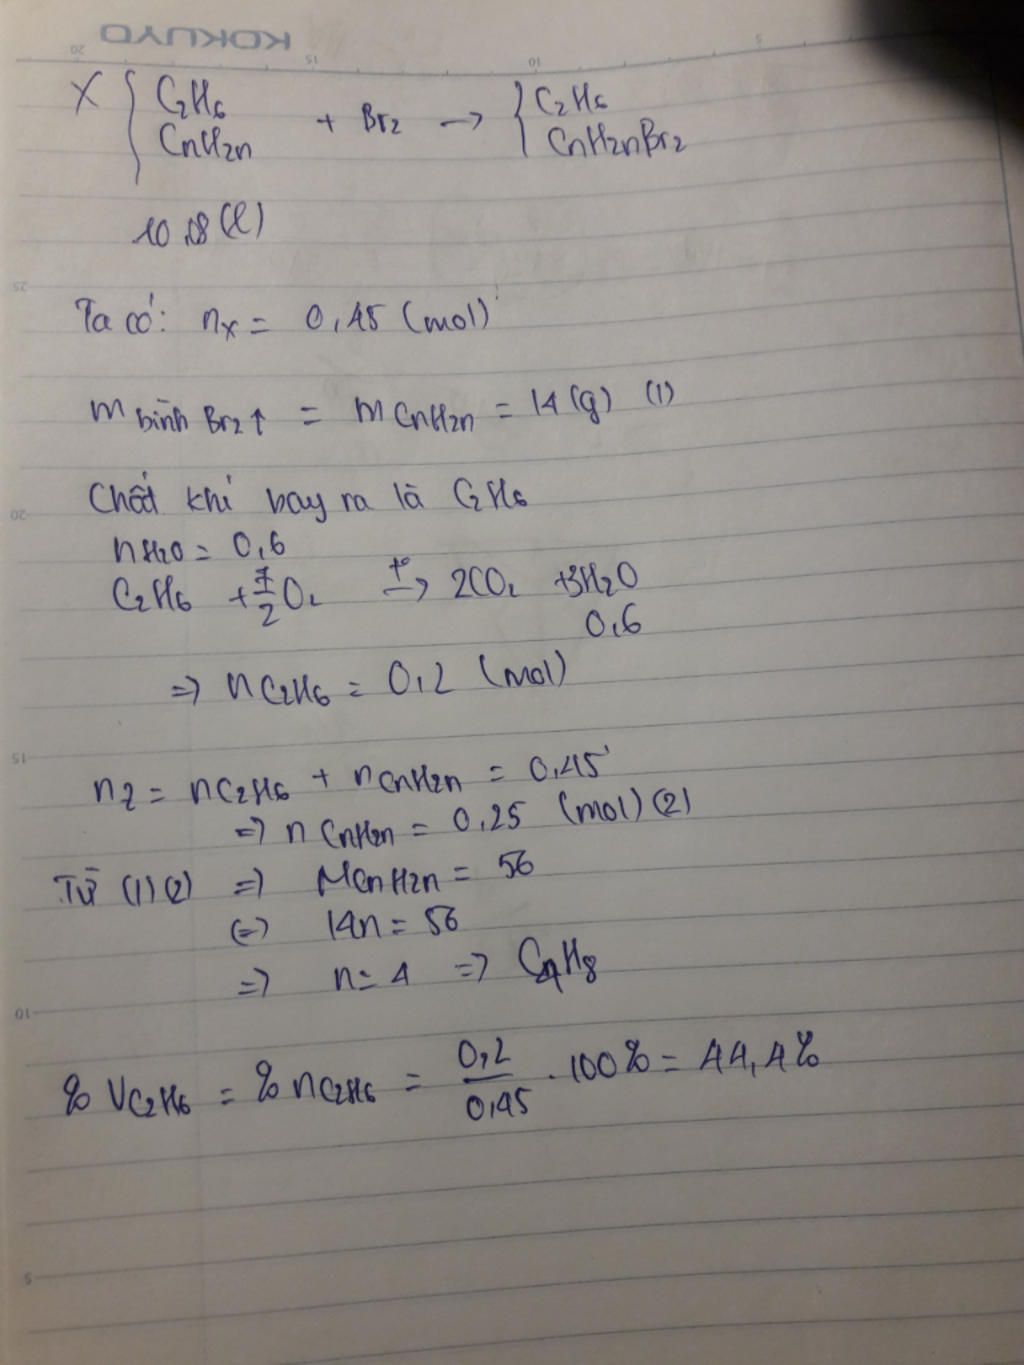 KOKUYO
20 15 10 5
X { C2H6 + Br2 → { C2H6
CnH2n CnH2nBr2
10,08 (l)
25
Ta có: nX = 0,45 (mol)
m bình Br2↑ = m CnH2n = 14 (g) (1)
Chất khí bay ra là C2H6
20
nH2O = 0,6
C2H6 + 7/2 O2 t°→ 2CO2 + 3H2O
0,6
=> nC2H6 = 0,2 (mol)
15
nZ = nC2H6 + nCnH2n = 0,45
=> nCnH2n = 0,25 (mol) (2)
Từ (1)(2) => MCnH2n = 56
(=) 14n = 56
=> n = 4 => C4H8
10
% VC2H6 = % nC2H6 = 0,2/0,45 . 100% = 44,4%
5